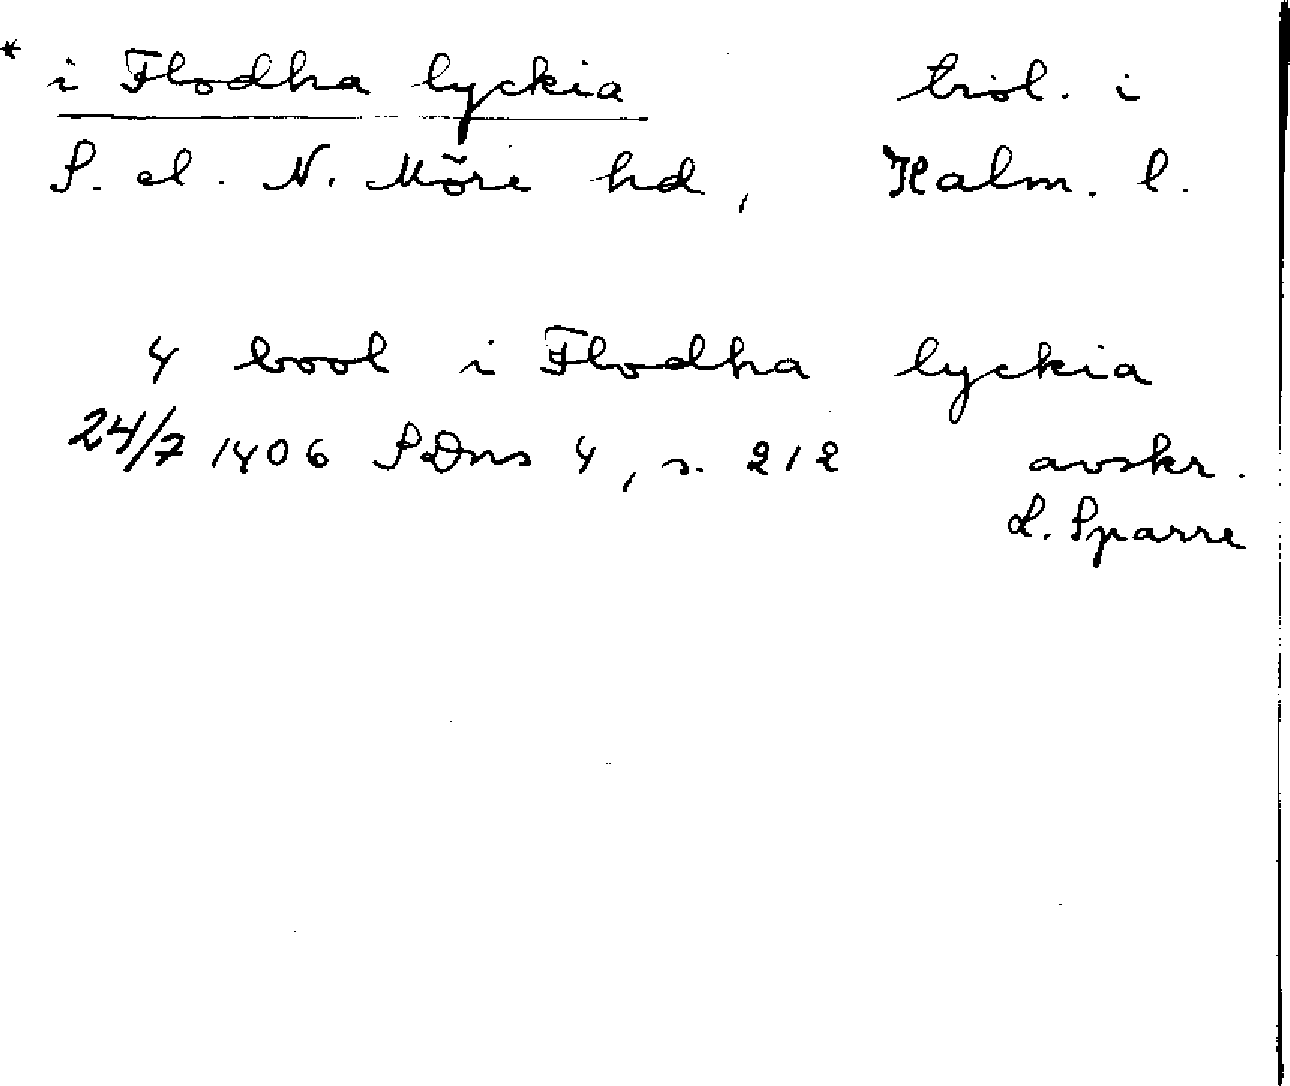 * i Flodha lyckia trol. i
S. el. N. Möre hd, Kalm. l.
4 bool i Flodha lyckia
24/7 1406 SDns 4, s. 212 avskr.
L. Sparre